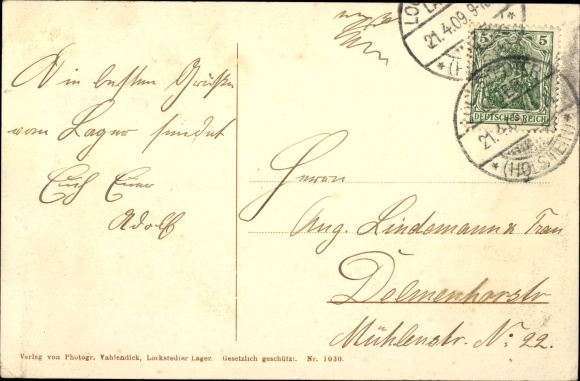 Die besten Grüße
vom Lager sendet
Euch Euer
Adolf
LOC
21.4.09.9-10
*(H
5 5
DEUTSCHES REICH
21.4.0
*(HOLSTEIN)*
Herrn
Aug. Lindemann & Frau
Delmenhorst
Mühlenstr. No. 22.
Verlag von Photogr. Vahlendick, Lockstedter Lager. Gesetzlich geschützt. Nr. 1030.